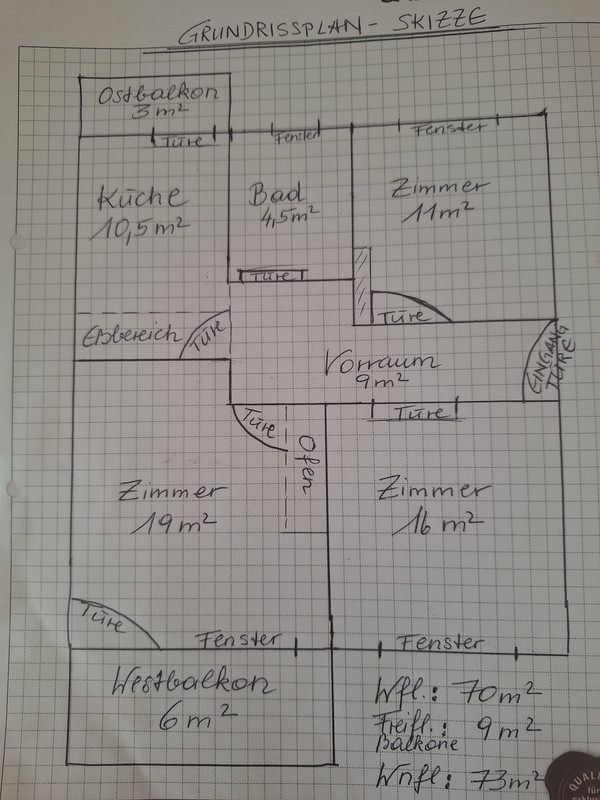 GRUNDRISSPLAN - SKIZZE
Ostbalkon
3 m²
Türe
Fenster
Fenster
Küche
10,5 m²
Bad
4,5 m²
Zimmer
11 m²
Türe
Türe
Eßbereich
Türe
Vorraum
9 m²
EINGANG
TÜRE
Türe
Türe
Ofen
Zimmer
19 m²
Zimmer
16 m²
Türe
Fenster
Fenster
Westbalkon
6 m²
Wfl.: 70 m²
Freifl.: 9 m²
Balkone
Wnfl: 73 m²
QUALI
für